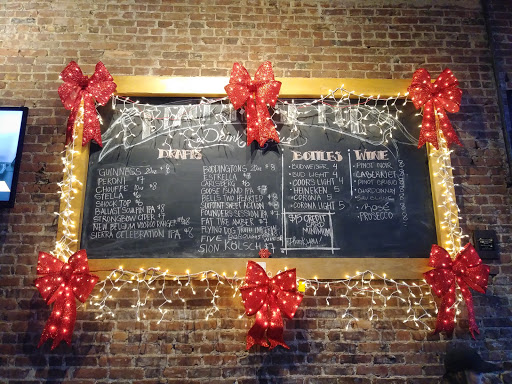 Drink
DRAFTS
GUINNESS 20oz $8
PERONI $7
CHOUFFE 10oz $8
STELLA $7
SHOCK TOP $6
BALLAST SCULPIN IPA $7
STRONGBOW CIDER $7
NEW BELGIUM VOODO RANGER $8
SIERRA CELEBRATION IPA $8
BODDINGTONS 20oz $8
ESTRELLA $7
CARLSBERG
GOOSE ISLAND IPA
BELL'S TWO HEARTED $8
SIXPOINT SWEET ACTION
FOUNDERS SESSION IPA $7
FAT TIRE AMBER $7
FLYING DOG
FIVE
SION KÖLSCH $7
BOTTLES
BUDWEISER 4
BUD LIGHT 4
COORS LIGHT 4
HEINEKEN 5
CORONA 5
CORONA LIGHT 5
$15 CREDIT
MINIMUM
Thank you!
WINE
PINOT NOIR
CABERNET
PINOT GRIGIO
CHARDONNAY
SAUV BLANC
ROSÉ
PROSECCO